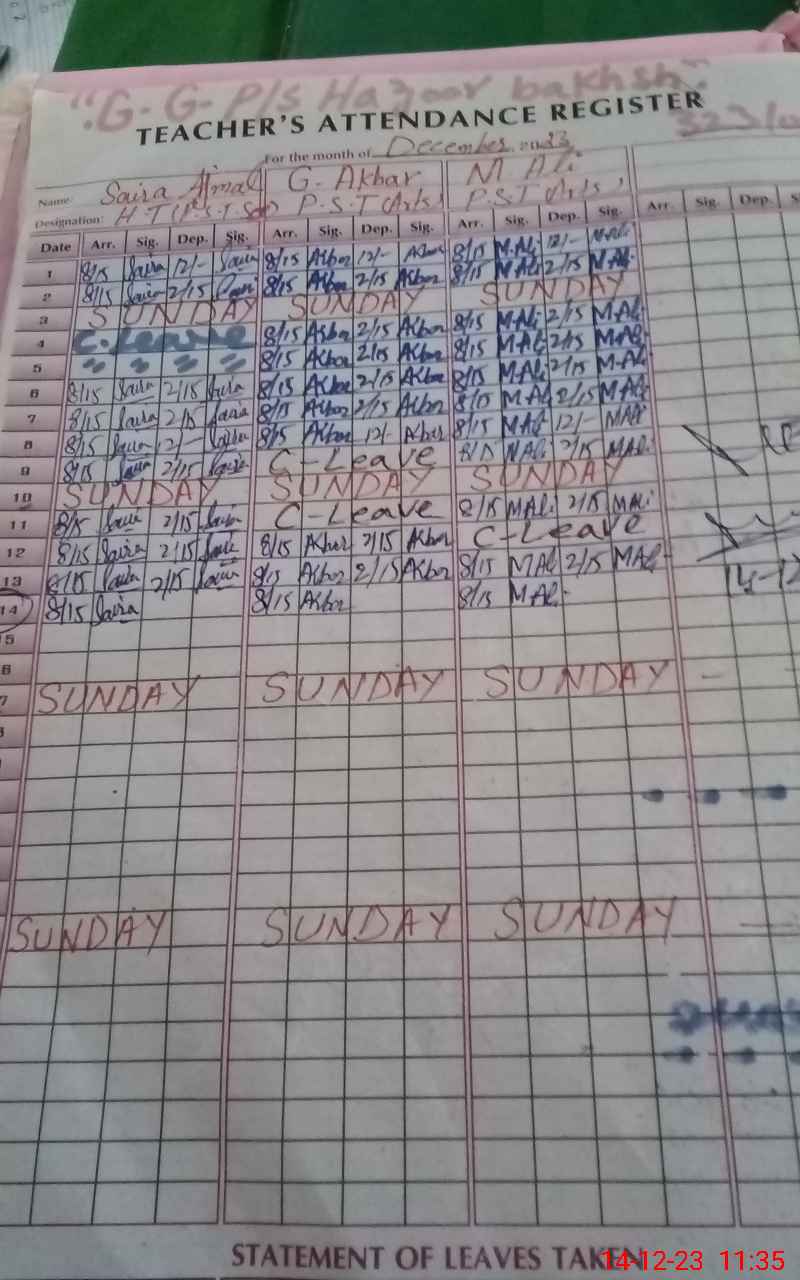 "G. G. P/S Hazoor bakhsh"
TEACHER'S ATTENDANCE REGISTER
For the month of December 2023
Name: Saira Ajmal G. Akbar M Ali
Designation: H.T (P.S.T. P.S.T (Arts) P.S.T (Arts)
Date Arr. Sig. Dep. Sig. Arr. Sig. Dep. Sig. Arr. Sig. Dep. Sig. Arr. Sig. Dep. S
1 8/15 Saira 12/- Saira 8/15 Akbar 12/- Akbar 8/15 M.Ali 12/- M.Ali
2 8/15 Saira 2/15 Saira 8/15 Akbar 2/15 Akbar 8/15 M.Ali 2/15 M.Ali
3 SUNDAY SUNDAY SUNDAY
4 C-Leave 8/15 Akbar 2/15 Akbar 8/15 M.Ali 2/15 M.Ali
5 " " " " 8/15 Akbar 2/15 Akbar 8/15 M.Ali 2/15 M.Ali
6 8/15 Saira 2/15 Saira 8/15 Akbar 2/15 Akbar 8/15 M.Ali 2/15 M.Ali
7 8/15 Saira 2/15 Saira 8/15 Akbar 2/15 Akbar 8/15 M.Ali 2/15 M.Ali
8 8/15 Saira 12/- Saira 8/15 Akbar 12/- Akbar 8/15 MAli 12/- MAli
9 8/15 Saira 2/15 Saira C-Leave 8/15 MAli 2/15 MAli
10 SUNDAY SUNDAY SUNDAY
11 8/15 Saira 2/15 Saira C-Leave 8/15 MAli 2/15 MAli
12 8/15 Saira 2/15 Saira 8/15 Akbar 2/15 Akbar C-Leave
13 8/15 Saira 2/15 Saira 8/15 Akbar 2/15 Akbar 8/15 MAli 2/15 MAli
14 8/15 Saira 8/15 Akbar 8/15 MAli 14-12
5
6
7 SUNDAY SUNDAY SUNDAY
SUNDAY SUNDAY SUNDAY
STATEMENT OF LEAVES TAKEN
14-12-23 11:35